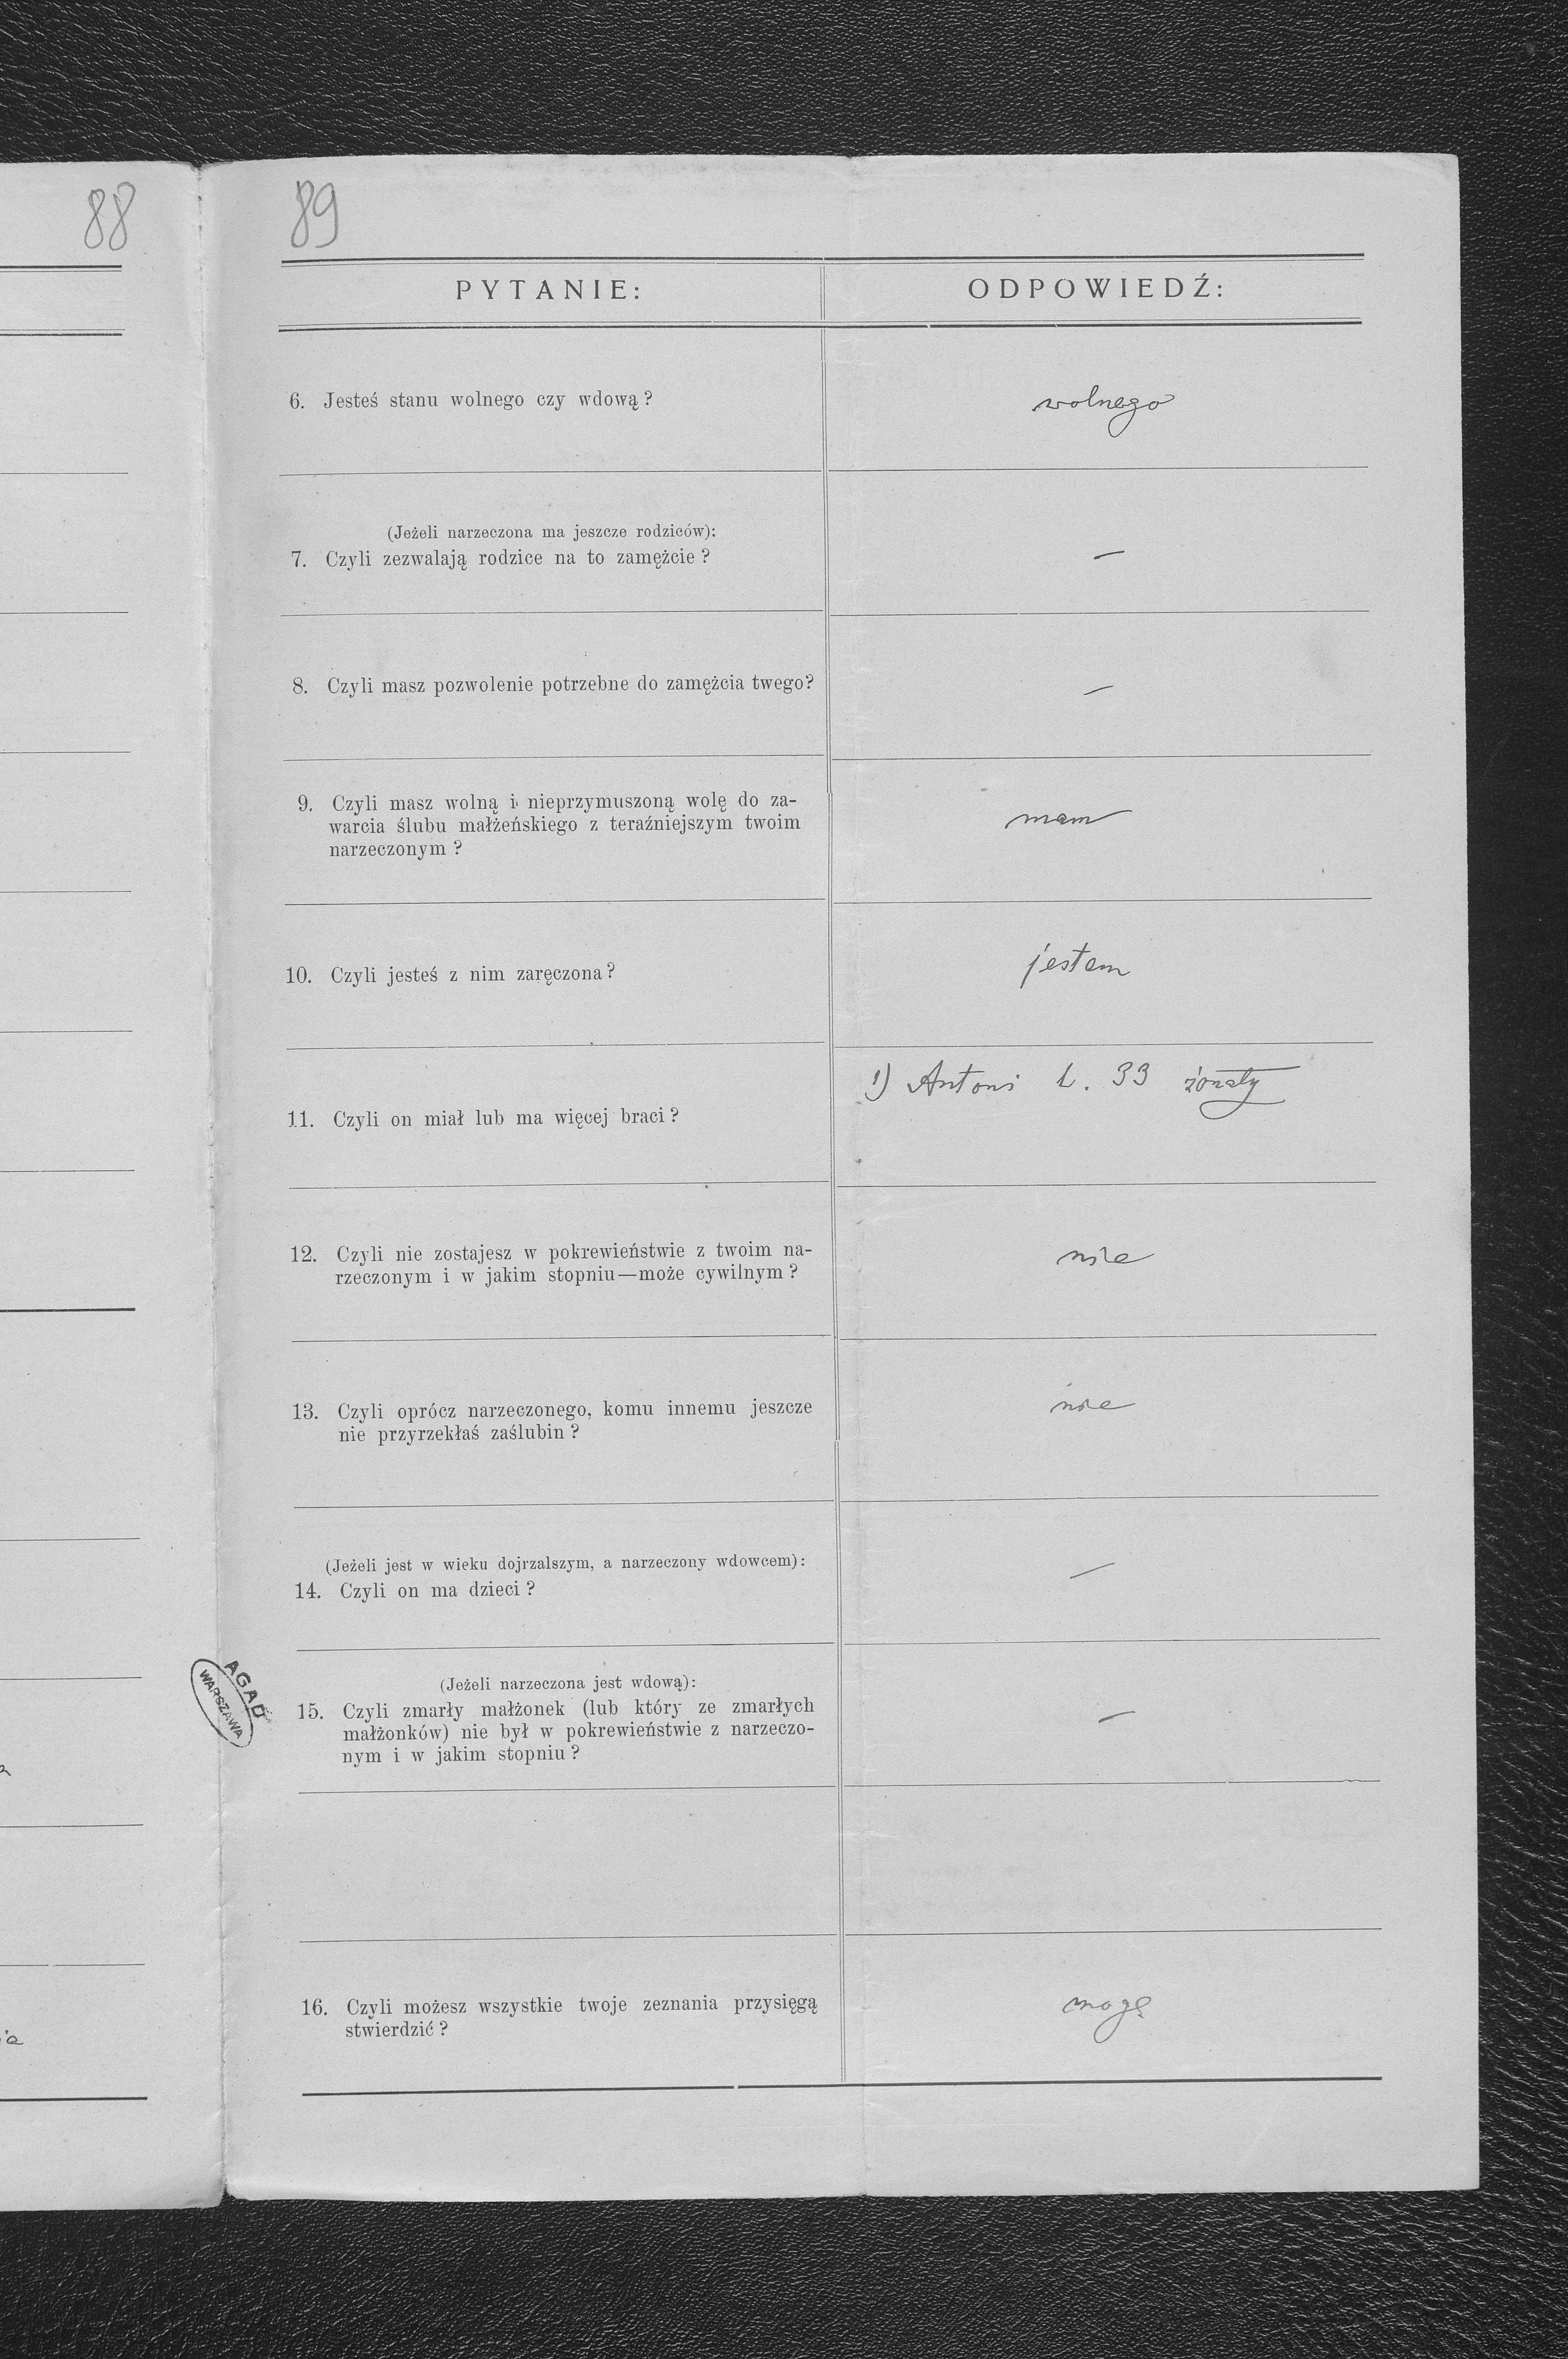 88
89
PYTANIE:
ODPOWIEDŹ:
6. Jesteś stanu wolnego czy wdową?
wolnego
(Jeżeli narzeczona ma jeszcze rodziców):
7. Czyli zezwalają rodzice na to zamężcie?
—
8. Czyli masz pozwolenie potrzebne do zamężcia twego?
—
9. Czyli masz wolną i nieprzymuszoną wolę do za-
warcia ślubu małżeńskiego z teraźniejszym twoim
narzeczonym?
mam
10. Czyli jesteś z nim zaręczona?
jestem
11. Czyli on miał lub ma więcej braci?
1) Antoni L. 33 żonaty
12. Czyli nie zostajesz w pokrewieństwie z twoim na-
rzeczonym i w jakim stopniu—może cywilnym?
nie
13. Czyli oprócz narzeczonego, komu innemu jeszcze
nie przyrzekłaś zaślubin?
nie
(Jeżeli jest w wieku dojrzalszym, a narzeczony wdowcem):
14. Czyli on ma dzieci?
—
(Jeżeli narzeczona jest wdową):
15. Czyli zmarły małżonek (lub który ze zmarłych
małżonków) nie był w pokrewieństwie z narzeczo-
nym i w jakim stopniu?
—
AGAD
WARSZAWA
16. Czyli możesz wszystkie twoje zeznania przysięgą
stwierdzić?
mogę